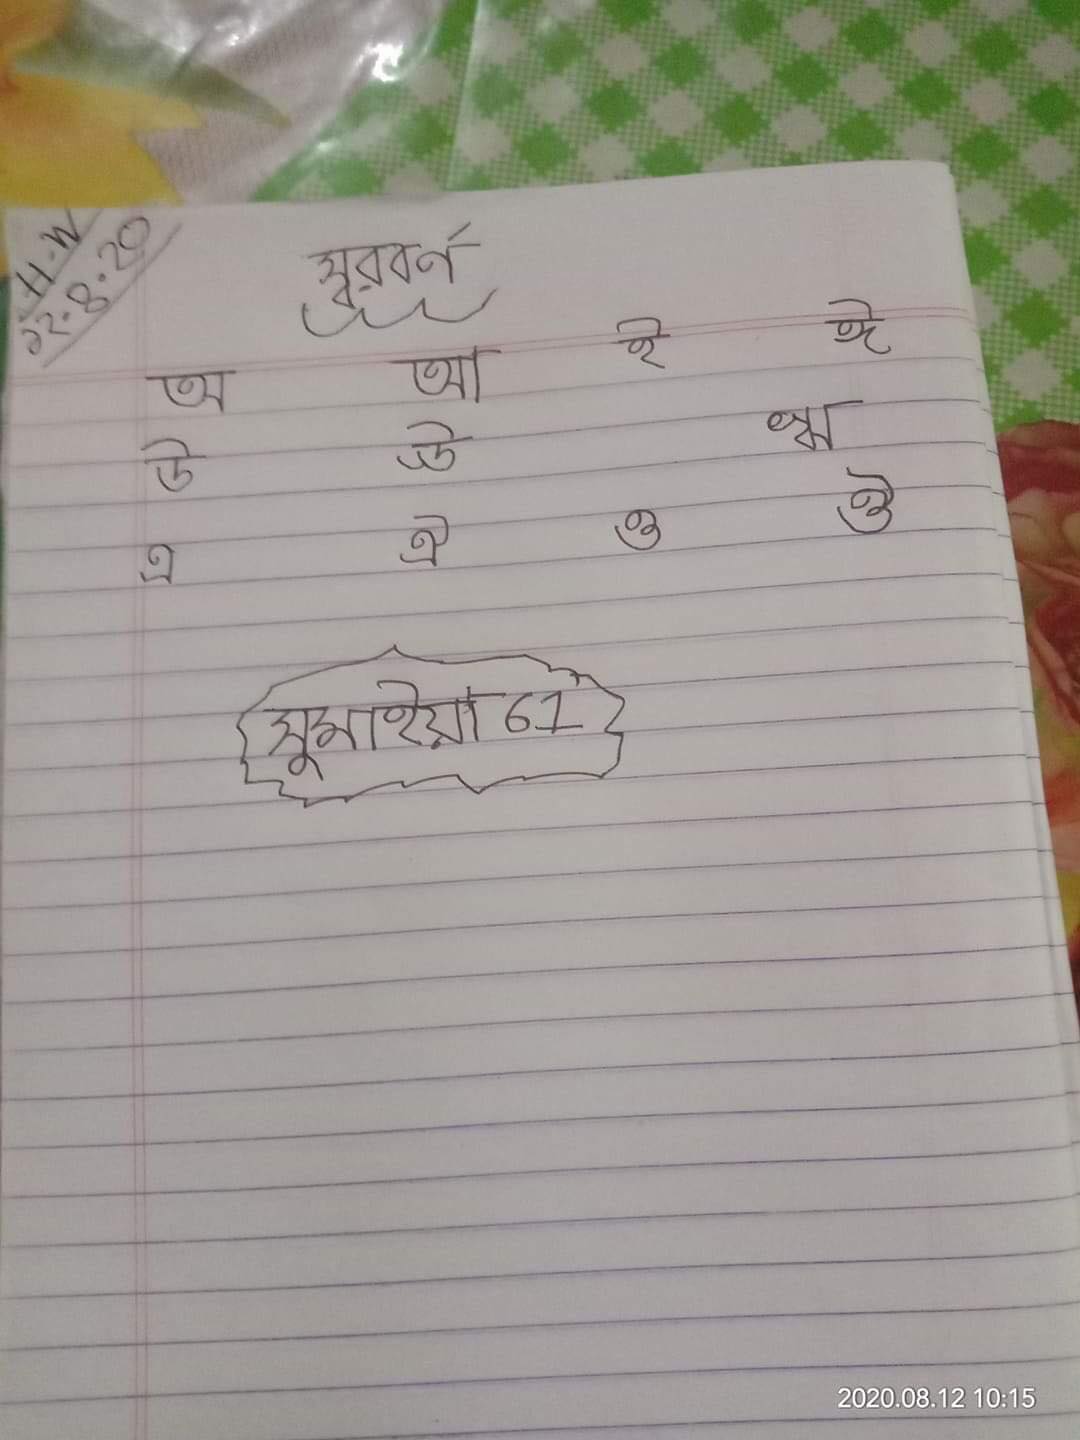 H.W
১২.8.20
স্বরবর্ণ
অ আ ই ঈ
উ ঊ ঋ
এ ঐ ও ঔ
সুমাইয়া 61
2020.08.12 10:15